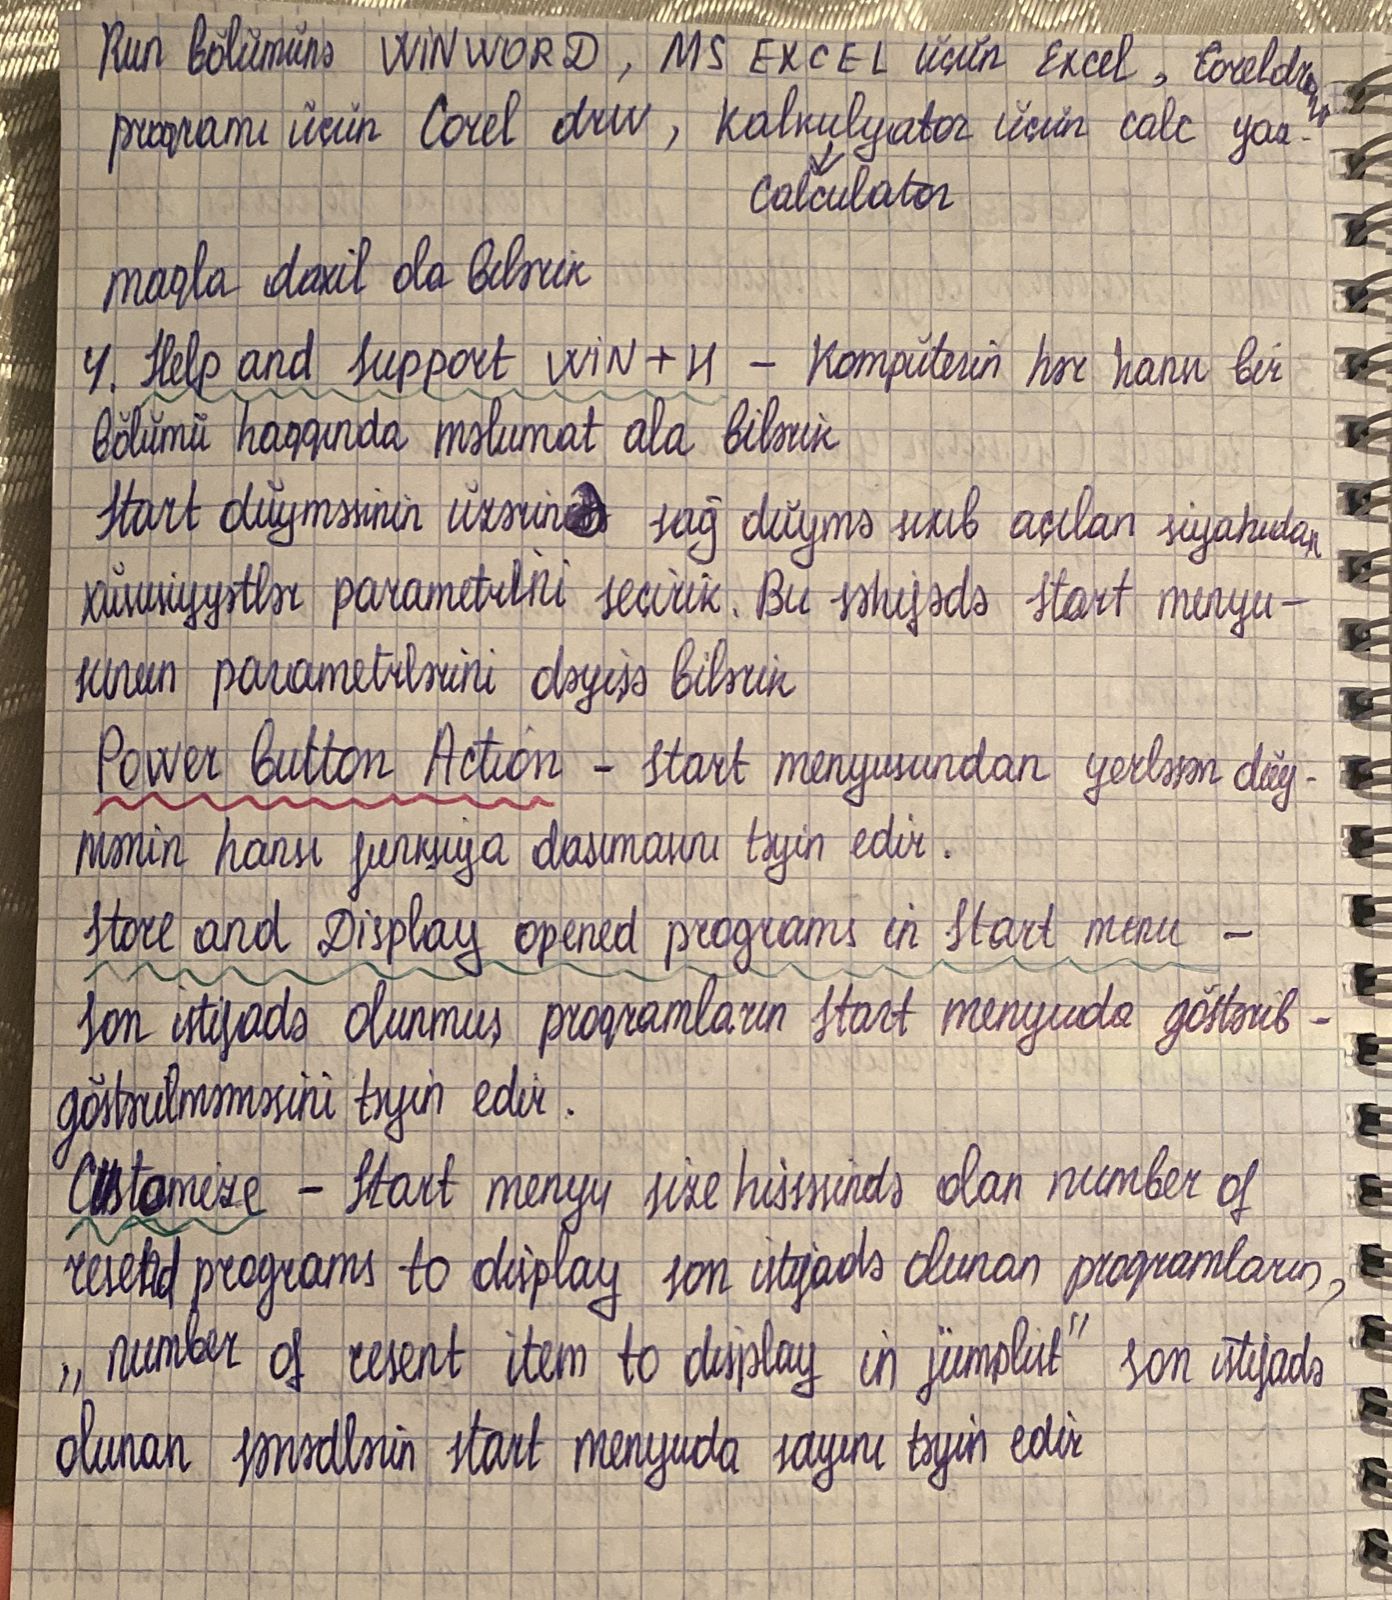 Run bölümünə WINWORD, MS EXCEL üçün Excel, Coreldraw
programı üçün Corel drw, Kalkulyator üçün calc yaz-
Calculator
maqla daxil ola bilərik
4. Help and Support WIN + H - Kompüterin hər hansı bir
bölümü haqqında məlumat ala bilərik
Start düyməsinin üzərində sağ düymə sıxıb açılan siyahıdan
xüsusiyyətlər parametrini seçirik. Bu səhifədə start menyu-
sunun parametrlərini dəyişə bilərik
Power button Action - Start menyusundan yerləşən düy-
mənin hansı funksiya daşımasını təyin edir.
Store and Display opened programs in Start menu -
son istifadə olunmuş proqramların Start menyuda göstərib-
göstərilməməsini təyin edir.
Customize - Start menyu size hissəsində olan number of
resend programs to display son istifadə olunan proqramların,
„number of resent item to display in jümplist" son istifadə
olunan sənədlərin start menyuda sayını təyin edir